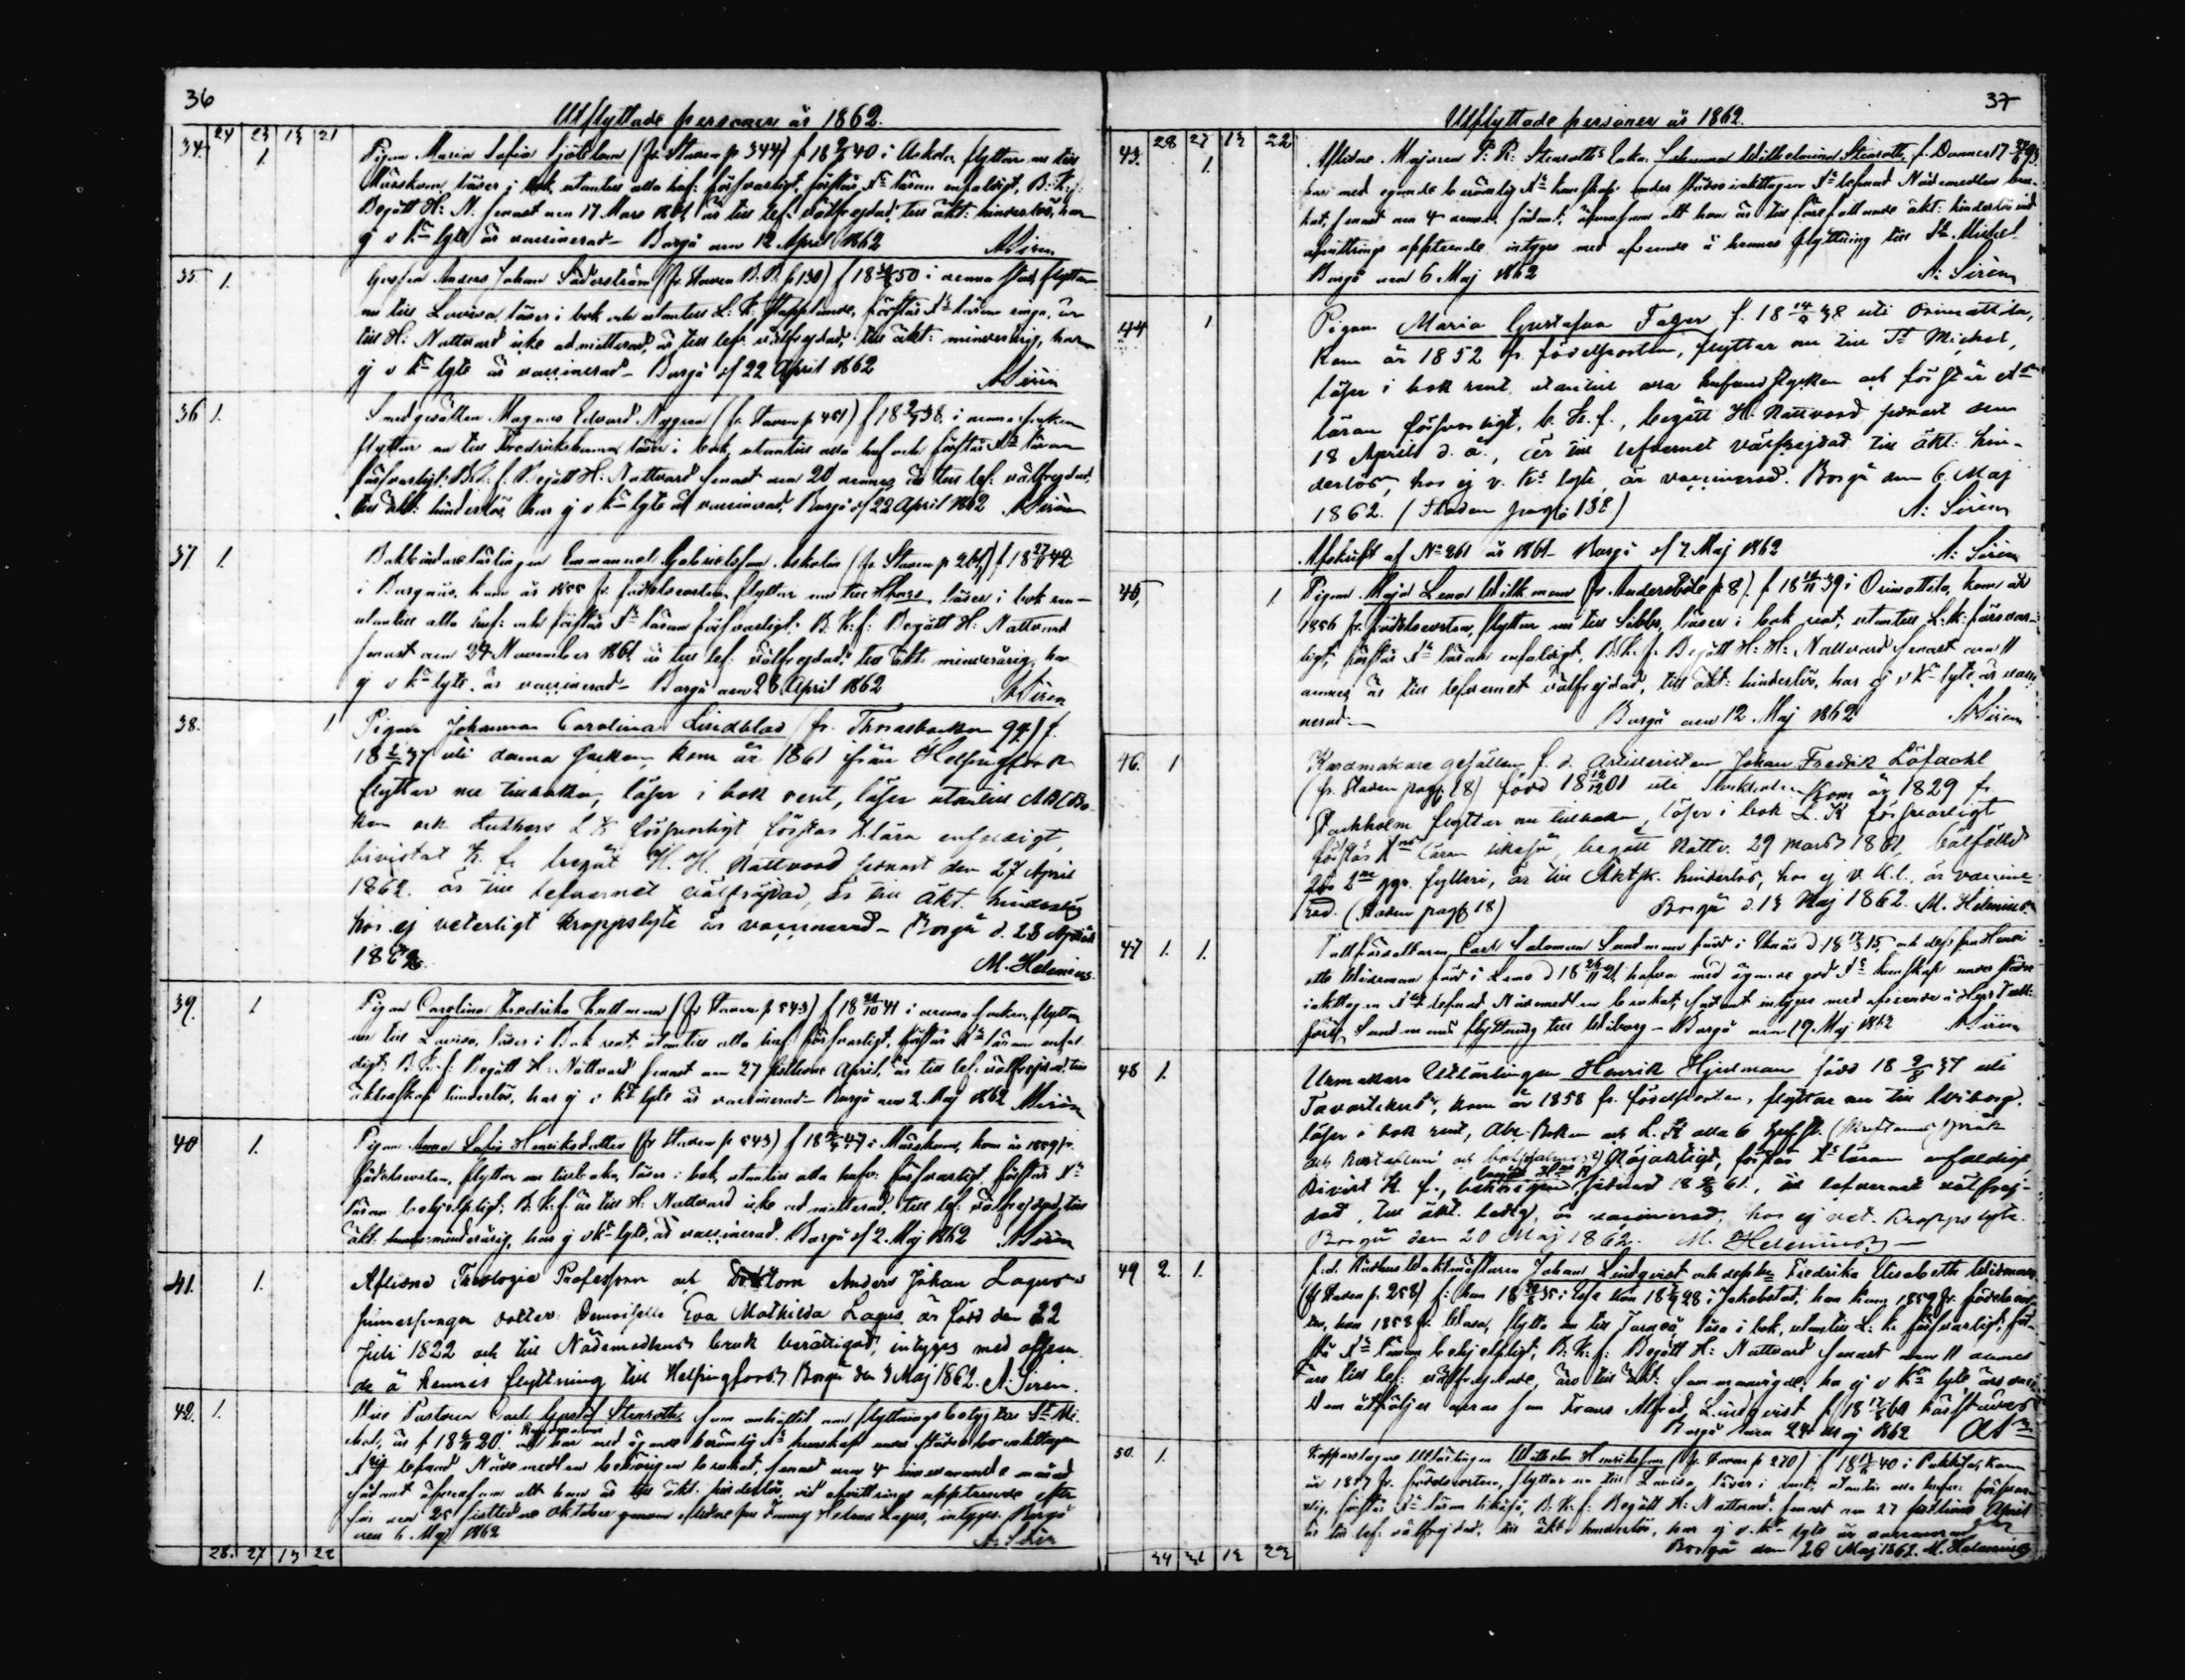 36
Utflyttade personer år 1862.
24 23 13 21
34. 1. Pigan Maria Sofia Sjöblom (fr. Staden p 344) f 18 40 i Askola, flyttar nu till
Mörskom, läser i bok, utantill alla huf: försvarligt, förstår X:s läran enfaldigt, B: K: f:
Begått H: N: senast den 17 Mars 1861, är till lef: välfrejdad, till äkt: hinderlös, har
ej v K:s lyte är vaccinerad – Borgå den 12 April 1862 A Siren
35. 1. Gossen Anders Johan Söderström (fr. Staden p 130) f 18 50 i denna stad, flyttar
nu till Lovisa, läser i bok och utantill L: K: förstår X:s läran ringa, är
till H: Nattvard icke admitterad, är till lef. välfrejdad, till äkt: minderårig, har
ej v K:s lyte är vaccinerad – Borgå d 22 April 1862 A Siren
36 1. Smedgesällen Magnus Edvard Nygren (fr. Staden p 451) f 18 38. i denna socken
flyttar nu till Fredrikshamn, läser i bok, utantill alla huf och förstår X:s läran
försvarligt, B: K: f. Begått H: Nattvard senast den 20 dennes är till lef: välfrejdad,
till äkt: hinderlös, har ej v K:s lyte är vaccinerad, Borgå d 22 April 1862 A Siren
37 1. Bokbindarelärlingen Emmanuel Gabrielsson Askolin (fr. Staden p 261) f 18 27/11 42
i Borgnäs, kom år 1855 fr. födelseorten, flyttar nu till läser i bok
utantill alla huf: och förstår X:s läran försvarligt. B. K: f: Begått H: Nattvard
senast den 24 November 1861, är till lef: välfrejdad, till äkt: minderårig, har
ej v K:s lyte, är vaccinerad – Borgå den 28 April 1862 A Siren
38. 1 Pigan Johanna Carolina Lindblad (fr. 94) f.
18 37 uti denna socken, kom år 1861 ifrån Helsingfors
flyttar nu tillbaka, läser i bok rent, läser utantill ABCBo-
ken och Luthers L K försvarligt förstår X lära enfaldigt,
bivistat K. f. begått H. H. Nattvard senast den 27 April
1862. är till lefvernet välfrejdad, är till Äkt. hinderlös
har ej veterligt kroppslyte är vaccinerad – Borgå d. 28 April
1862. M. Helenius.
39. 1 Pigan Carolina Fredrika Kullman (fr Staden p 543) f 18 10 41 i denna socken, flyttar
nu till Lovisa, läser i Bok rent, utantill alla huf: försvarligt, förstår X:s läran enfal-
digt. B. K: f: Begått H: Nattvard senast den 27 sistlidne April, är till lef: välfrejdad, till
äktenskap hinderlös, har ej v K:s lyte är vaccinerad – Borgå den 2. Maj 1862 A Siren
40 1. Pigan Anna Sofia Henriksdotter (fr Staden p 543) f 18 47 i Mörskom, kom år 1859 fr.
födelseorten, flyttar nu tillbaka, läser i bok, utantill alla huf: försvarligt, förstår X:s
läran behjelpligt. B. K: f. är till H: Nattvard icke admitterad, till lef: välfrejdad, till
äkt: minderårig, har ej v K:s lyte, är vaccinerad. Borgå d 2. Maj 1862 A Siren
41. 1. Aflidne Theologie Professorn och Doktorn Anders Johan Lagus's
dotter Demoiselle Eva Mathilda Lagus, är född den 22
Juli 1822 och till Nådemedlens bruk berättigad, intyges med afseen-
de å hennes flyttning till Helsingfors. Borgå den 3 Maj 1862. A. Siren.
42. 1. Vice Pastorn Carl Gustaf Stenroth, som anhållit om flyttningsbetyg till S:t Mi-
chel, är f 18 20. och har med ägande berömlig X:s kunskap under iakttagen
X:lig lefnad Nådemedlen behörigen brukat, senast den 4 innevarande månad
sådant äfvensom att han är till äkt. hinderlös, vid afvittrings uppteende efter
sin den 25 sistlidne Oktober genom aflidne fru Fanny Helena Lagus, intyges. Borgå
den 6. Maj 1862 A. Siren
28. 27 13 22
37
Utflyttade personer år 1862.
28 27 13 22
43. 1. Aflidne Majoren P. R: Stenroths Enka, Johanna Wilhelmina Stenroth, f. Donner 17 93
har med egande berömlig X:s kunskap under städse iakttagen X:s lefnad Nådemedlen bru-
kat, senast den 4 dennes, sådant, äfvensom att hon är till förefallande äkt: hinderlös vid
afvittrings uppteende intyges med afseende å hennes flyttning till S:t Michel.
Borgå den 6. Maj 1862 A: Siren
44 1 Pigan Maria Gustafva Fager f. 18 14/9 38 uti Orimattila,
Kom år 1852 fr. födelseorten, flyttar nu till S:t Michel,
läser i bok rent utantill alla hufvudstycken och förstår X:s
läran försvarligt, b. K. f., begått H. Nattvard senast den
18 April d. å., är till lefvernet välfrejdad till äkt. hin-
derlös, har ej v. K:s lyte, är vaccinerad. Borgå den 6 Maj
1862. (Staden pag: 138) A: Siren
Afskrift af N:o 261 år 1861 – Borgå d 7 Maj 1862 A: Siren
45, 1. Pigan Maja Lena Willkman (fr. Andersböle p 8) f 18 11 39 i Orimattila, kom år
1856 fr. födelseorten, flyttar nu till Sibbo, läser i bok rent, utantill L: k: försvar-
ligt, förstår X:s läran enfaldigt, B. K. f. Begått H: H: Nattvard senast den 11
dennes är till lefvernet välfrejdad, till äkt: hinderlös, har ej v K:s lyte är vacci-
nerad. – Borgå den 12. Maj 1862 A Siren
46. 1 Kardmakaregesällen f. d. Artilleristen Johan Fredrik Löfdahl
(fr. Staden pag 18) född 18 12/12 01 uti Stockholm Kom år 1829 fr.
Stockholm flyttar nu tillbaka, läser i bok L. K försvarligt
förstår X:ns läran likaså, begått Nattv. 29 mars 1861, bötfälld
för 2:ne ggr. fylleri, är till Äktsk. hinderlös, har ej v K.l. är vaccine-
rad. (Staden pag 18) Borgå d. 13 Maj 1862. M. Helenius.
47 1. 1. Tullförvaltaren Carl Salomon Sandman född i Ekenäs d. 18 15, och dess fru Henri-
ette Wideman född i Lemo d 18 21, hafva med ägande god X:s kunskap under städse
iakttagen X:lig lefnad Nådemedlen brukat, sådant intyges med afseende å Herr Tull-
förv. Sandmans flyttning till Wiborg – Borgå den 19. Maj 1862 A Siren
48 1. Urmakare Utlärlingen Henrik Hjelman född 18 9/8 37 uti
Tavastehus, kom år 1858 fr. födelseorten, flyttar nu till Wiborg.
läser i bok rent, Abc-Boken och L. K alla 6 hufst.
nöjaktigt, förstår X:s läran enfaldigt
Bivist K. f., begått H. N. senast 18 61., är lefvernet välfrej-
dad, till äkt. ledig, är vaccinerad, har ej vet. Kroppslyte.
Borgå den 20 Maj 1862. M. Helenius
49 2. 1. f.d. Johan Lindqvist och dess hu Fredrika Elisabeth Widman
(fr Staden p. 258) f: han 18 35 i hon 18 28 i Jakobstad, han kom 1859 fr. födelseor-
ten, hon 1858 fr. Wasa, flytta nu till läsa i bok, utantill L: k: försvarligt, för-
stå X:s läran behjelpligt, B: K: f: Begått H: Nattvard senast den 11 dennes
äro till lef: välfrejdade, äro till äkt: sammanvigde; ha ej v K:s lyte äro vacc.
Dem åtföljer deras son Frans Alfred Lindqvist f 18 60
Borgå den 24 Maj 1862
50. 1. Kopparslagare Utlärlingen Wilhelm Henriksson (fr. Staden p 270) f 18 40 i Pukkila, kom
år 1857 fr. födelseorten, flyttar nu till Lovisa, läser i rent, utantill alla hufv: försvar-
lig, förstår X:s läran likaså, B. K. f: Begått H: Nattvard senast den 27 sistlidne April
är till lef: välfrejdad, till äkt: hinderlös, har ej v. K:s lyte är vaccinerad
Borgå den 26 Maj 1862. M. Helenius
34 31 13 23